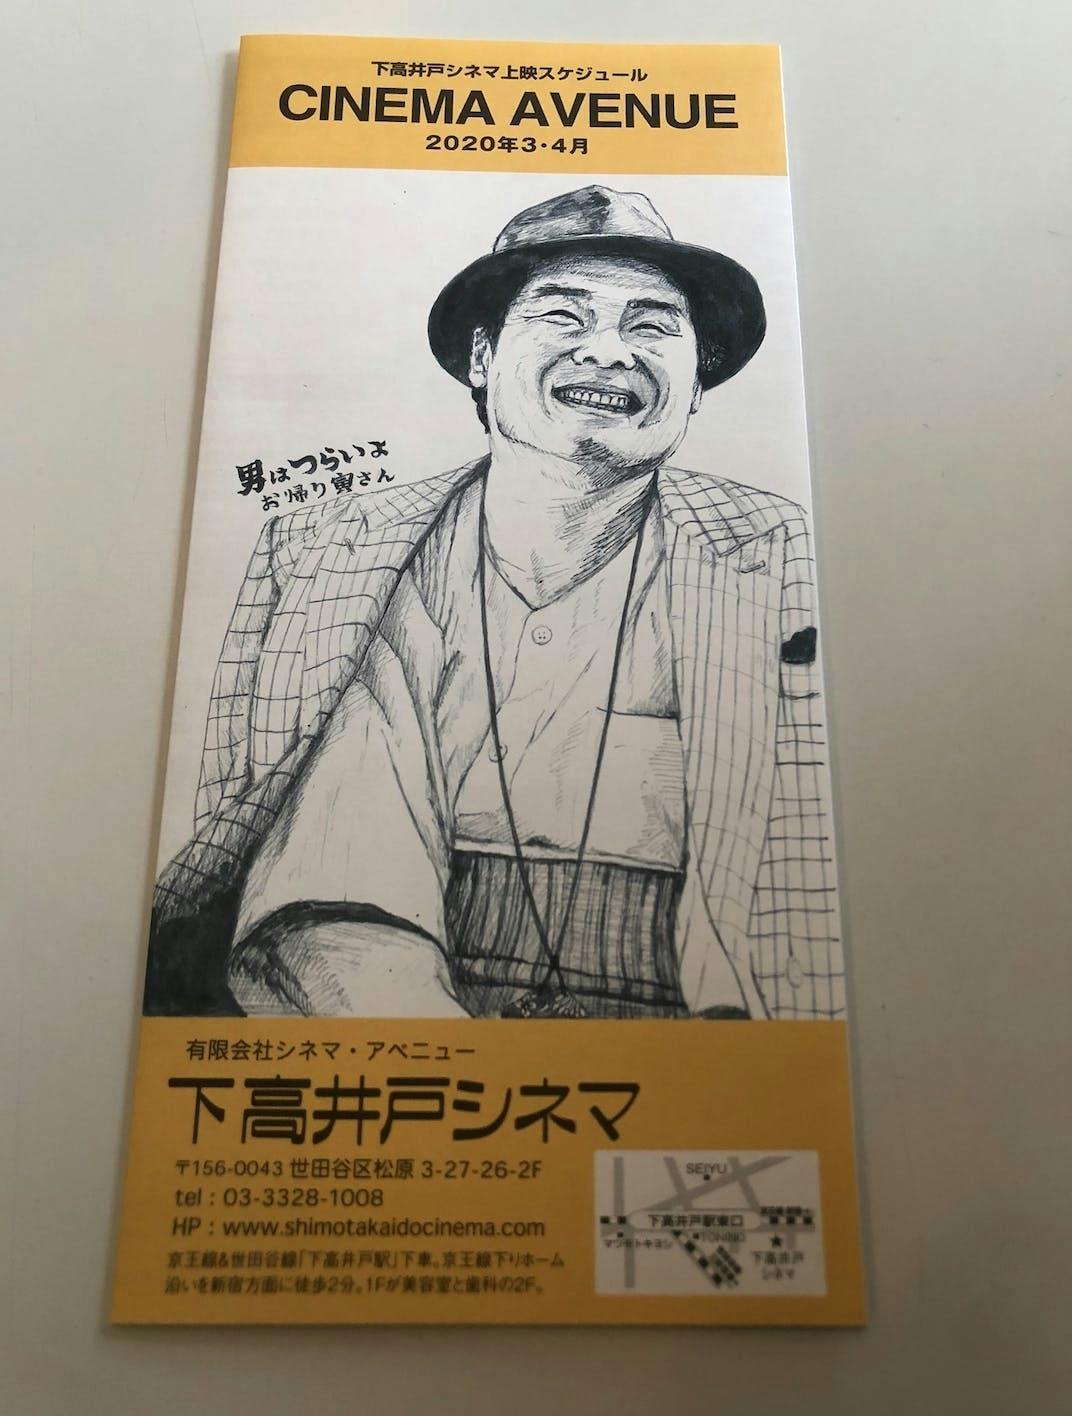 下高井戸シネマ上映スケジュール
CINEMA AVENUE
2020年3・4月
男はつらいよ
お帰り寅さん
有限会社シネマ・アベニュー
下高井戸シネマ
〒156-0043 世田谷区松原 3-27-26-2F
tel : 03-3328-1008
HP : www.shimotakaidocinema.com
京王線&世田谷線「下高井戸駅」下車。京王線下りホーム
沿いを新宿方面に徒歩2分。1Fが美容室と歯科の2F。
SEIYU
下高井戸駅東口
マツモトキヨシ
TONINO
下高井戸
シネマ